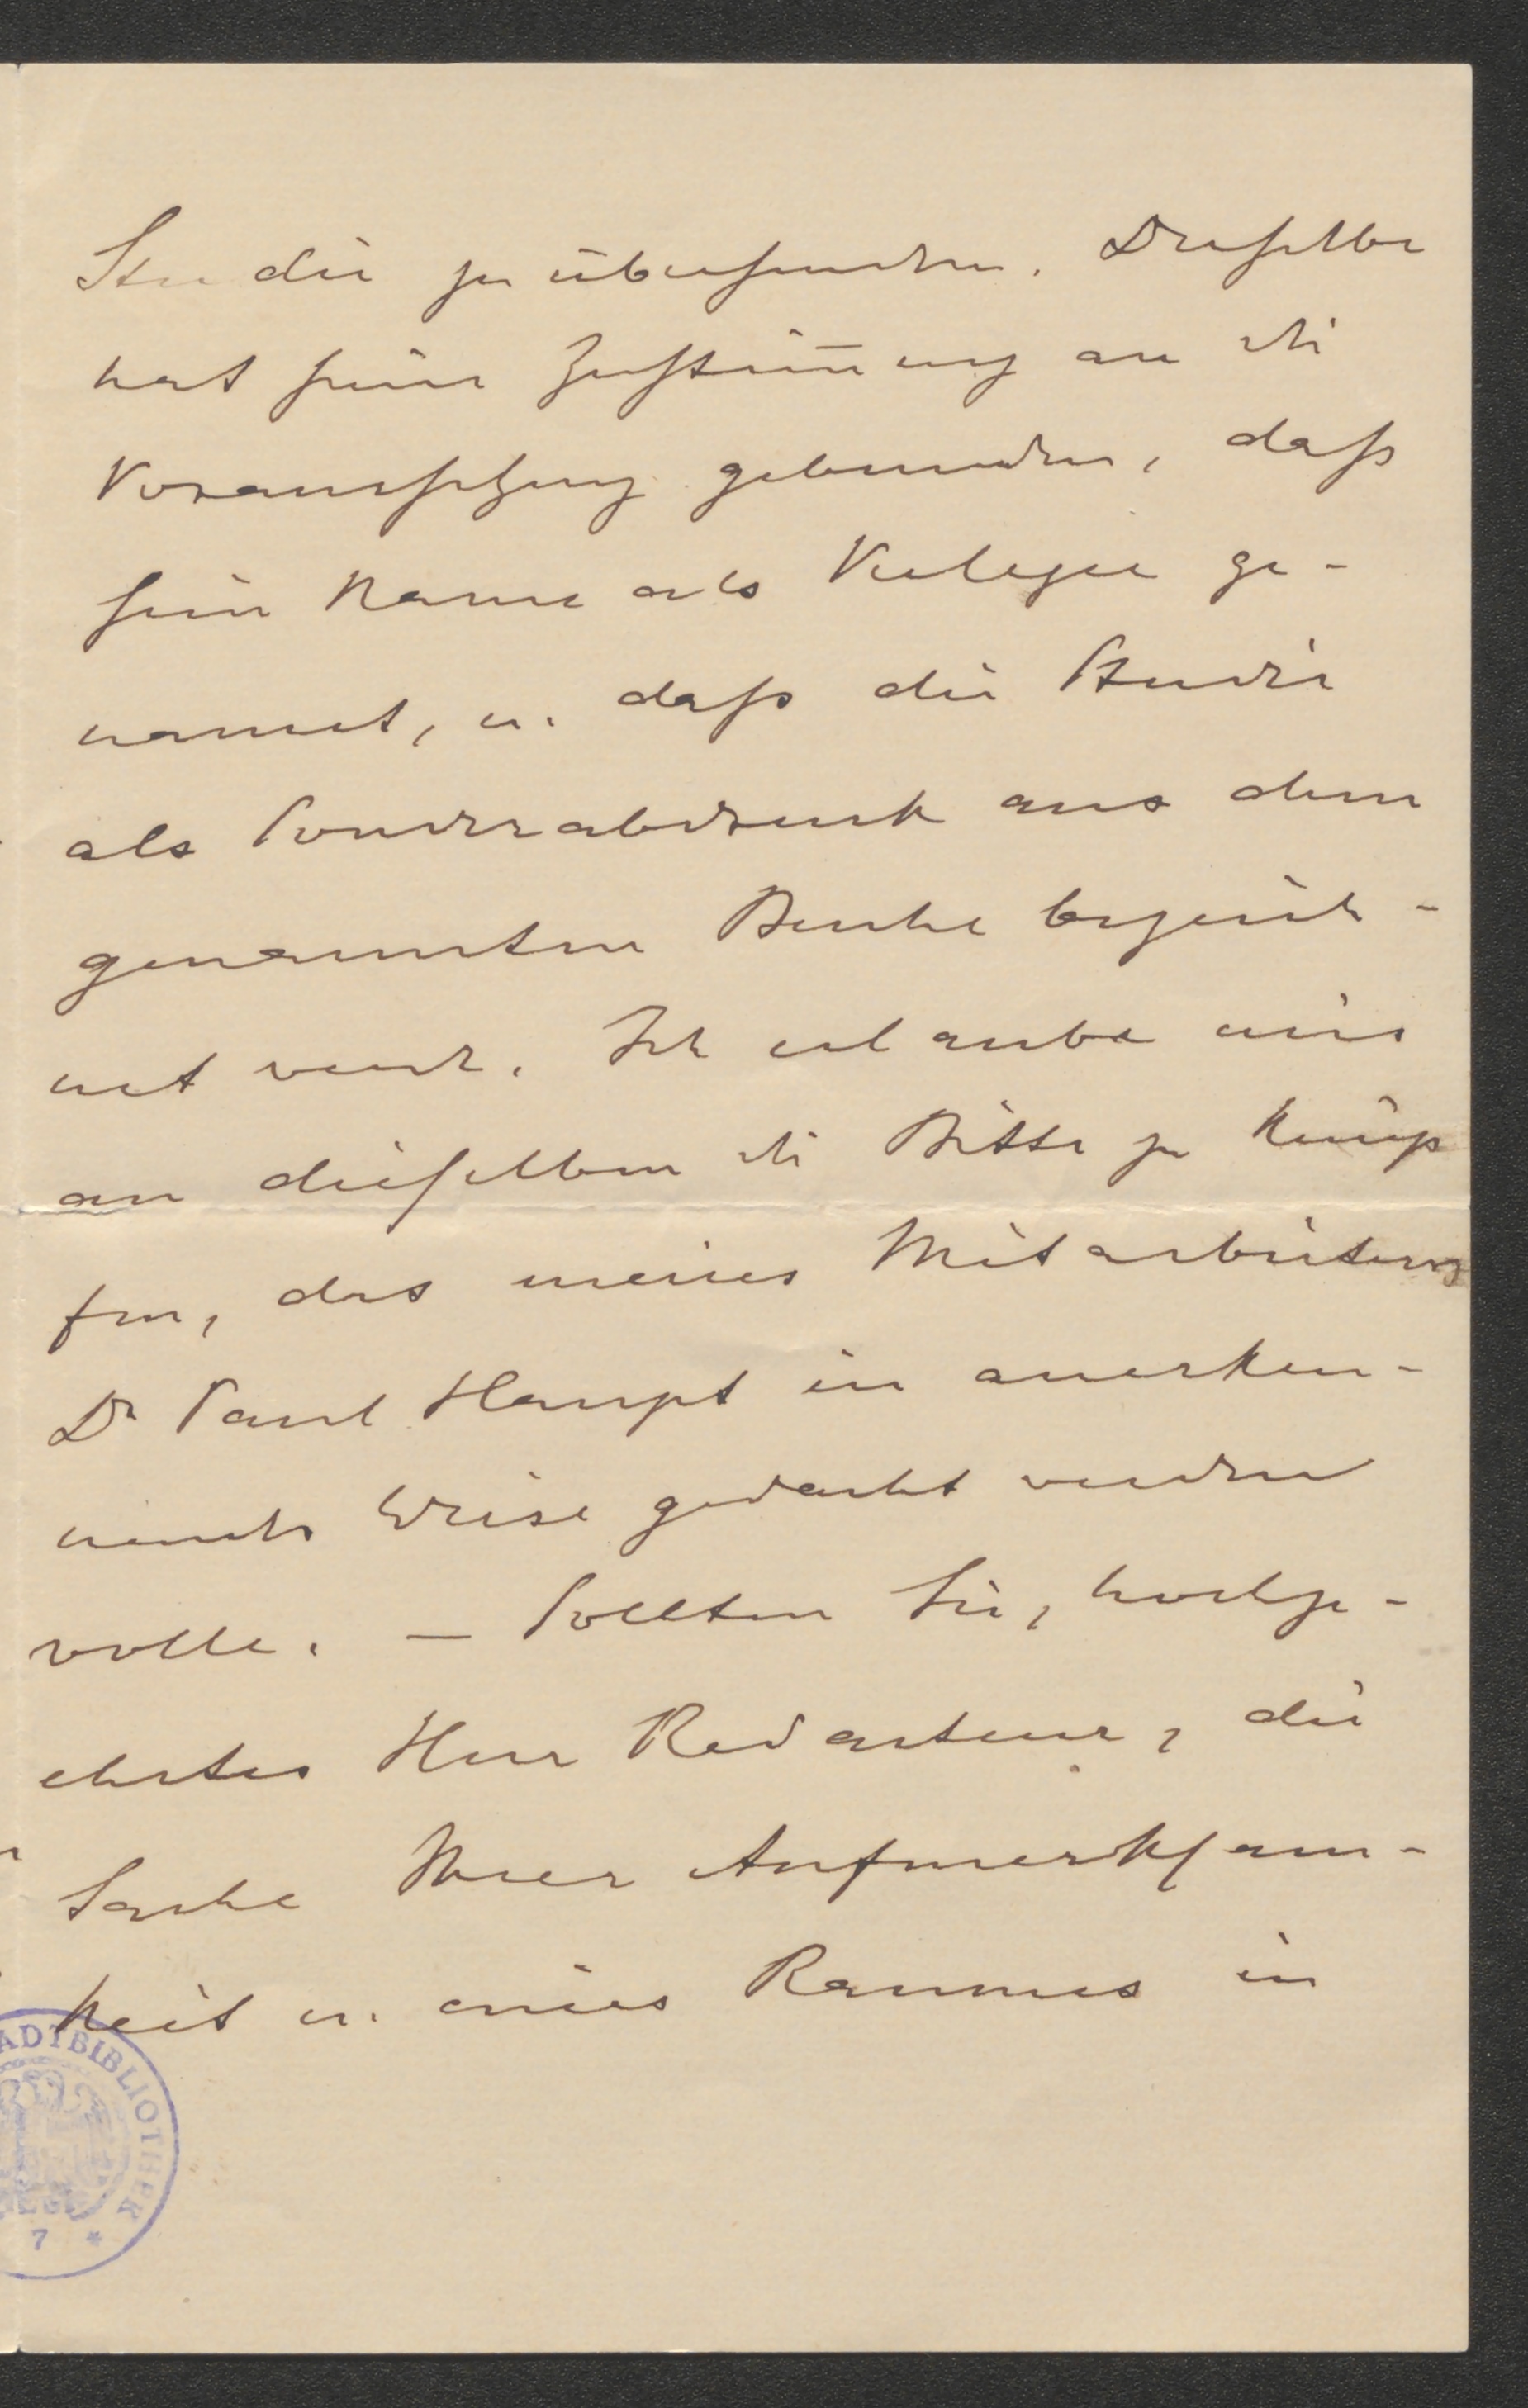 Studie zu übersenden. Dieselbe
hat seine Zustim̅ung an die
Voraussetzung gebunden, daß
sein Name als Verleger ge-
nannt, u. daß die Studie
als Sonderabdruck aus dem
genannten Buche bezeich-
net werde. Ich erlaube mir
an dieselben die Bitte zu knüp
fen, das meines Mitarbeiters
Dr Paul Haupt in anerken-
nender Weise gedacht werden
wolle. — Sollten Sie, hochge-
ehrter Herr Redacteur, die
Sache Ihrer Aufmerksam-
keit u. eines Raumes in
ADTBIBLIOTHEK
7 *